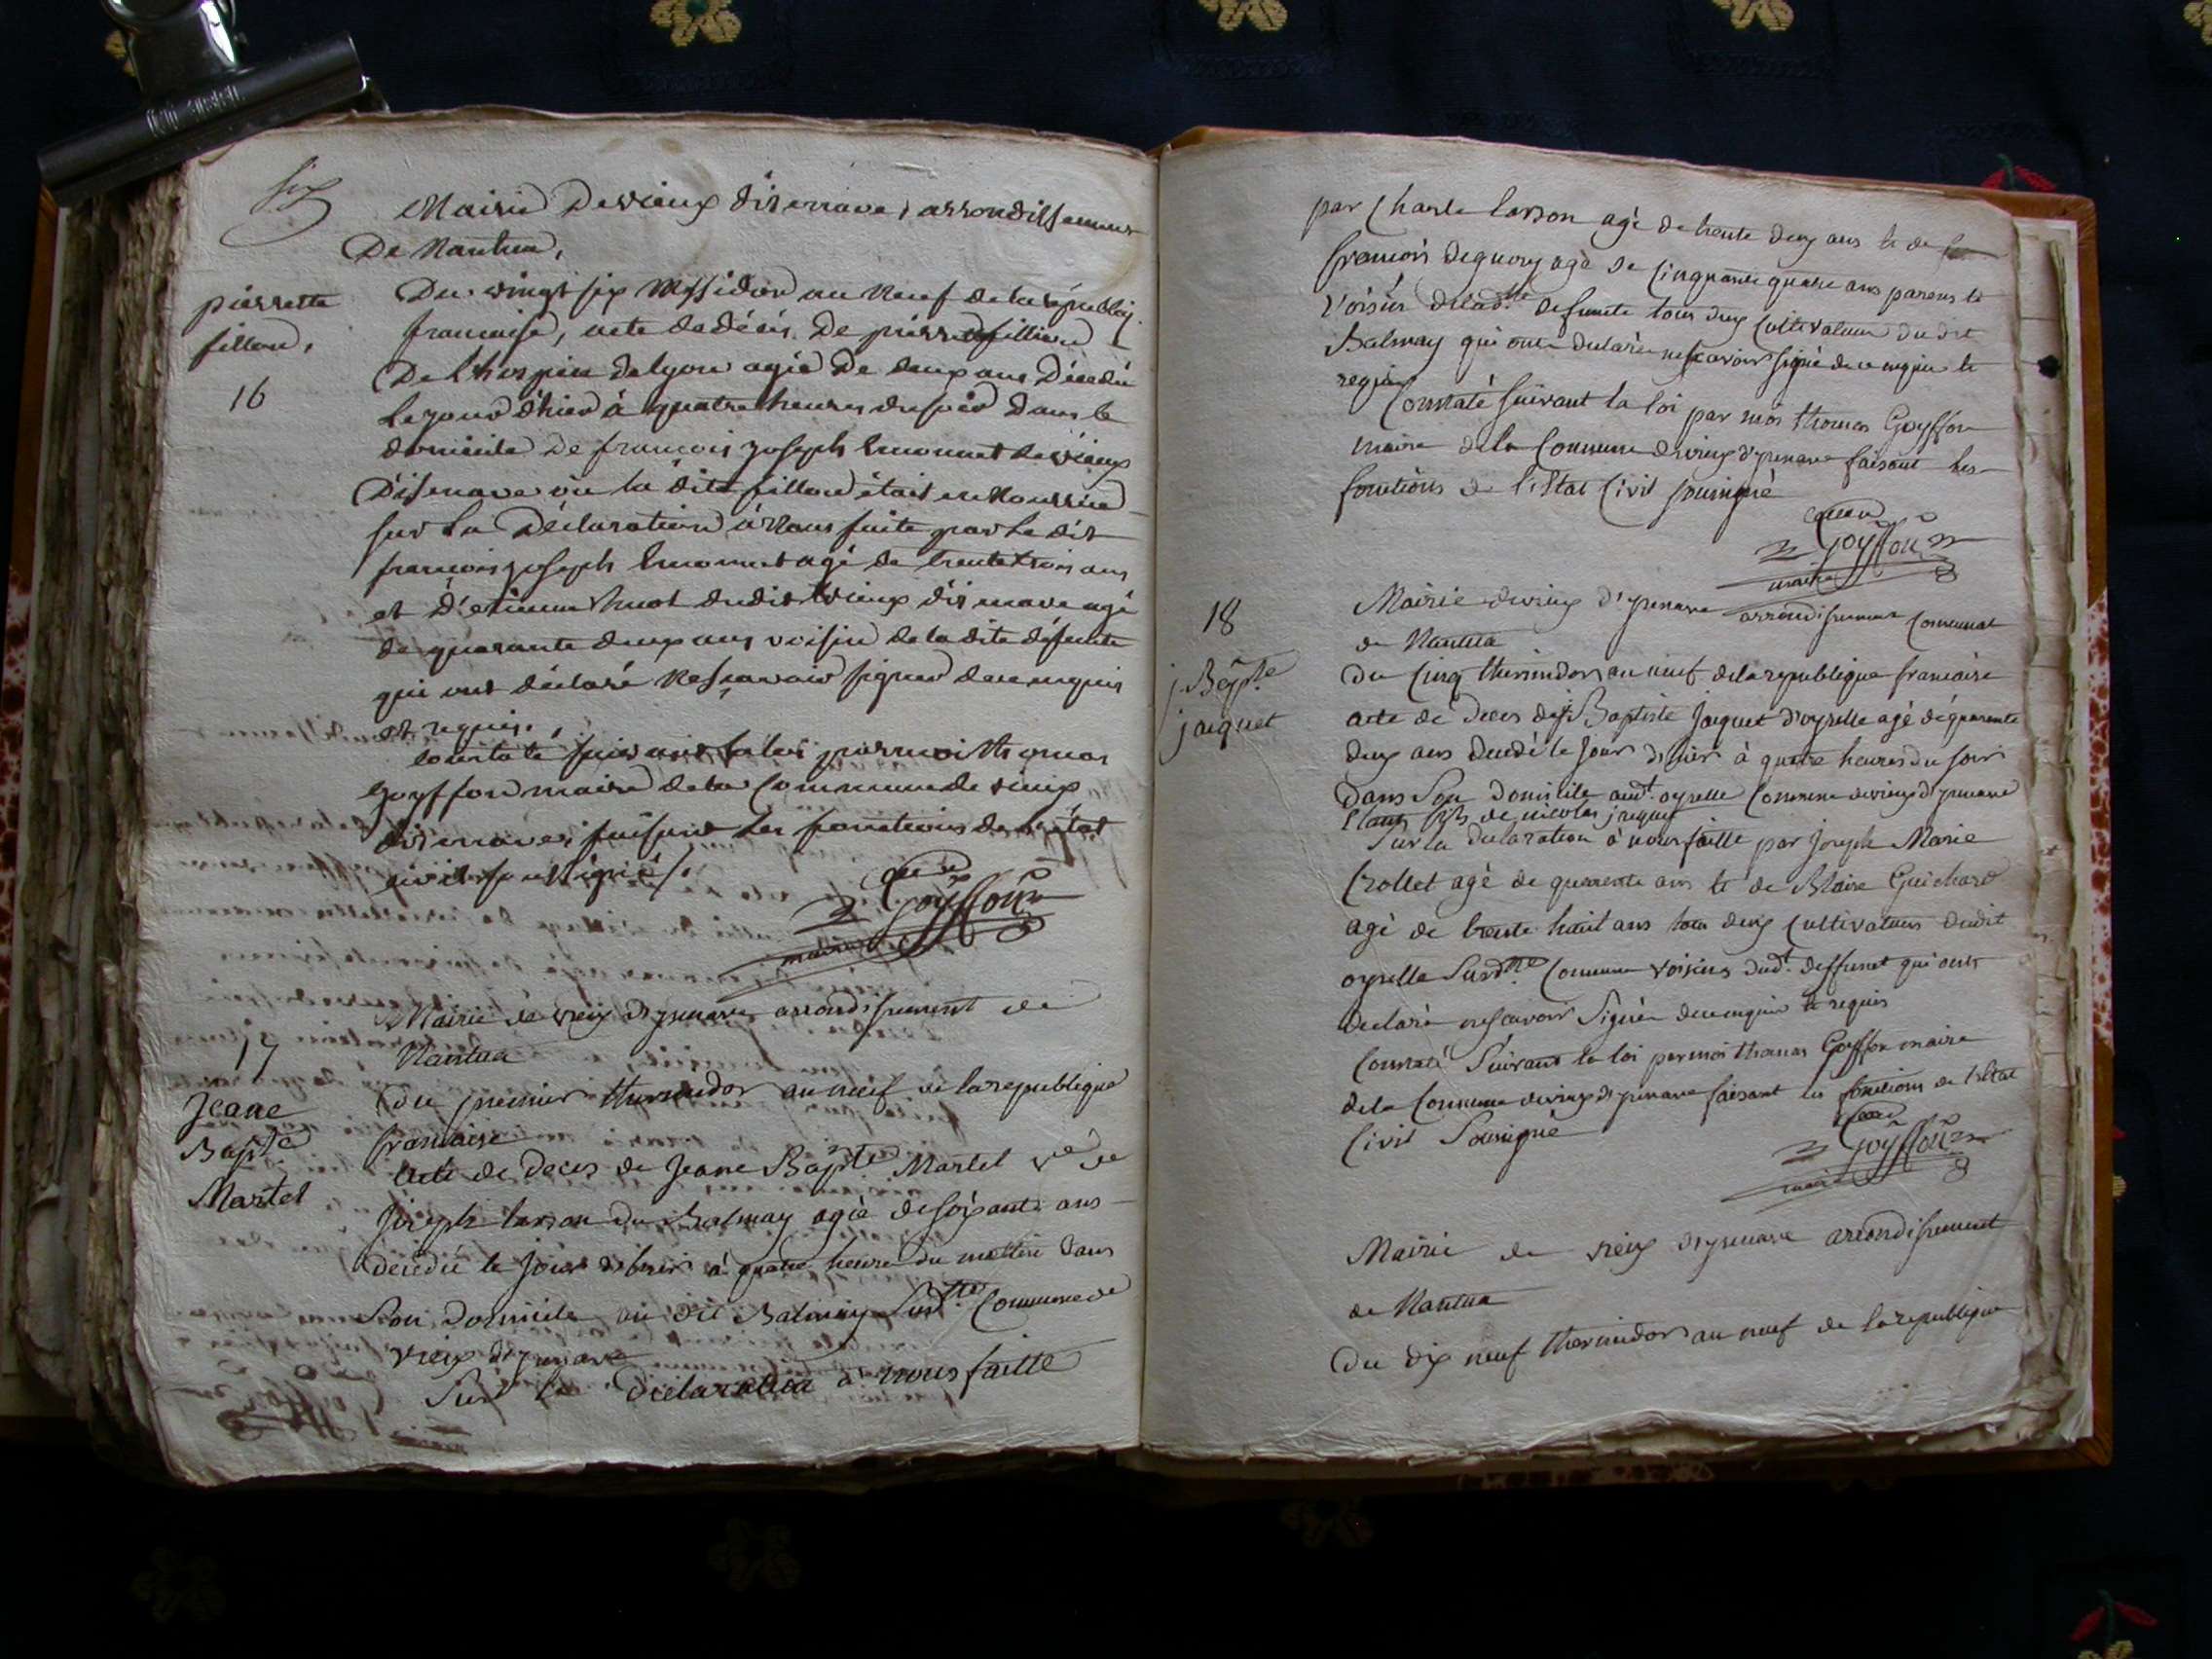 six
Mairie De vieux d'isenave, arrondissement
De Nantua,
pierrette
fillon,
16
Du vingt six Messidor an Neuf de la républiq.
francaise, acte de décès De pierrette fillion
De L'hospice de lyon agée De deux ans Décédée
le jour d'hier à quatre heures du soir Dans le
domicile De francois joseph Emonnet de vieux
D'isenave où la dite fillon était en Nourrice
sur La Déclaration à Nous faite par Le dit
francois joseph Emonnet agé de trente trois ans
et D'etienne huot dudit vieux d'isenave agé
de quarante deux ans voisin de la dite défunte
qui ont déclaré Ne scavoir signer de ce enquis
et requis.
constaté suivant la loi par moi thomas
goyffon maire de la commune de vieux
d'isenave, faisant les fonctions de l'état
civil soussigné /.
Goyffon
maire
Mairie de vieux d'ysenave arrondissement de
Nantua
17
Jeane
Bapte
Martel
Du premier thermidor an neuf de la republique
francaise
Acte de Deces de Jeane Bapte Martel ve de
Joseph larson du Balmay agée de soixante ans
decedée le jour d'hier à quatre heure du mattin dans
Son Domicile au dit Balmay susdtte Commune de
vieux d'ysenave
Sur la Déclaration à nous faitte
par Charle larson agé de trente deux ans et de
francois deguery agé de cinquante quatre ans parens et
voisin de ladtte defunte tous deux Cultivateurs du dit
Balmay qui ont declaré ne scavoir signé de ce enquis et
requis
Constaté suivant la loi par moi thomas Goyffon
maire de la Commune de vieux d'ysenave faisant les
fonctions de l'Etat Civil sousigné
Goyffon
maire
18
j. Bapte
jacquet
Mairie de vieux d'ysenave arrondissement Communal
de Nantua
du Cinq thermidor an neuf de la republique francaise
acte de deces de j. Baptiste Jacquet d'oyselle agé de quarente
deux ans decedé le jour d'hier à quatre heures du soir
dans Son Domicile audt. oyselle Commune de vieux d'ysenave
Etant fils de nicolas jacquet
Sur la declaration à nous faitte par Joseph Marie
Crollet agé de quarente ans et de Blaise Guichard
agé de trente huit ans tous deux Cultivateurs dudit
oyselle Susdtte Commune voisins dudt. deffunct qui ont
declaré ne scavoir Signer de ce enquis et requis
Constaté Suivant la loi par moi thomas Goyffon maire
de la Commune de vieux d'ysenave faisant les fonctions de l'Etat
Civil Sousigné
Goyffon
maire
Mairie de vieux d'ysenave arrondissement
de Nantua
Du dix neuf thermidor an neuf de la republique